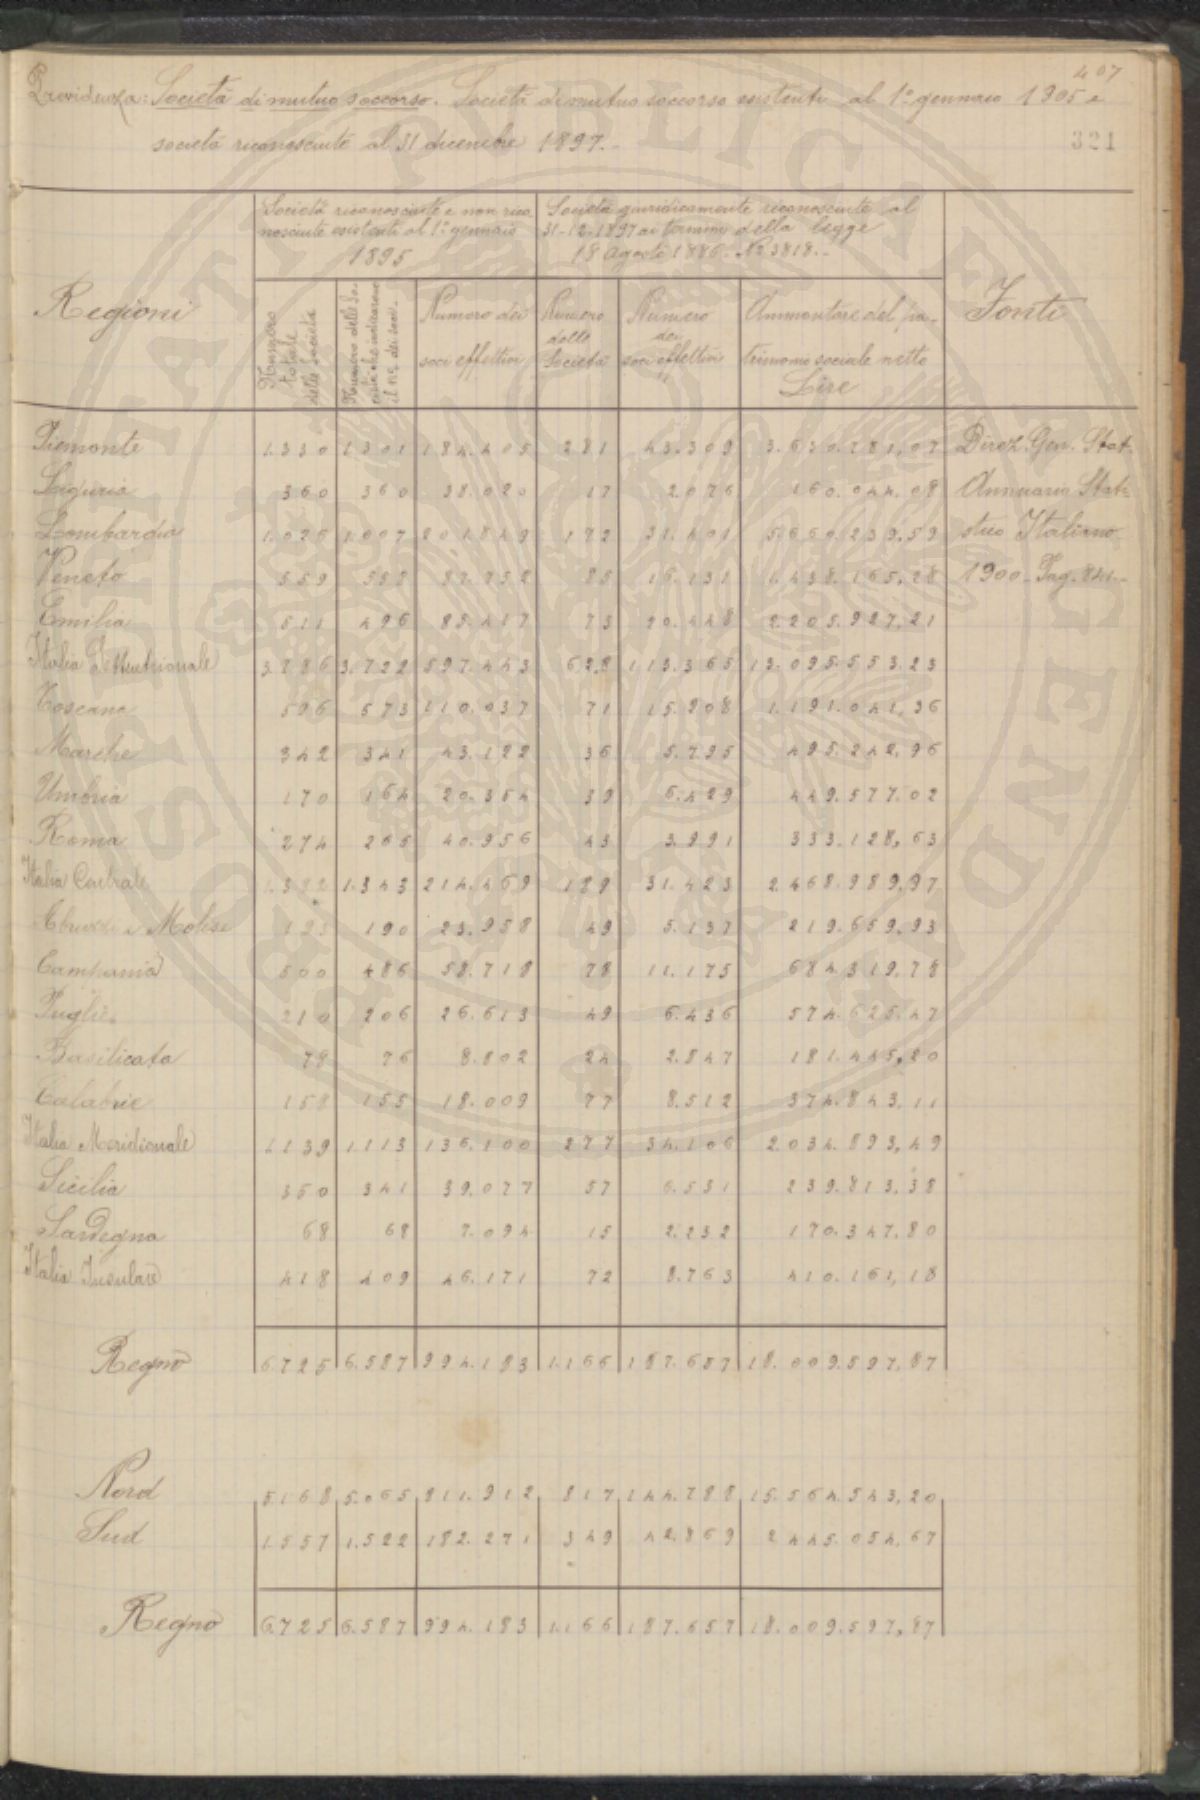 407
Previdenza: Società di mutuo soccorso. Società di mutuo soccorso esistenti al 1° gennaio 1905 e
società riconosciute al 31 dicembre 1897.-
321
Società riconosciute e non rico
nosciute esistenti al 1° gennaio
1895
Società giuridicamente riconosciute al
31-12-1897 ai termini della legge
18 Agosto 1886 - N° 3818.-
Regioni
Numero totale delle Società
Numero delle So- cietà che indicarono il n° dei soci.
Numero dei soci effettivi
Numero delle Società
Numero dei soci effettivi
Ammontare del pa- trimonio sociale netto Lire
Fonti
Piemonte 1.330 1.301 184.405 281 43.309 3.630.781,07 Direz. Gen. Stat.
Liguria 360 360 38.020 17 2.076 160.044.08 Annuario Stati-
Lombardia 1.026 1.007 201.849 172 31.401 5.660.239.59 stico Italiano
Veneto 559 558 87.752 85 16.131 1.438.165,28 1900 - Pag. 841-
Emilia 511 496 85.417 73 20.448 2.205.927,21
Italia Settentrionale 3.786 3.722 597.443 628 113.365 13.095.553.23
Toscana 596 573 110.037 71 15.208 1.191.041,36
Marche 342 341 43.122 36 5.795 495.242,96
Umbria 170 164 20.354 39 6.429 449.577.02
Roma 274 265 40.956 43 3.991 333.128,63
Italia Centrale 1.382 1.343 214.469 189 31.423 2.468.989,97
Abruzzi e Molise 190 23.958 49 5.137 219.659,93
Campania 500 486 58.718 78 11.175 684.319.78
Puglie 210 206 26.613 49 6.436 574.625.47
Basilicata 79 76 8.802 24 2.847 181.445,20
Calabrie 158 155 18.009 77 8.512 374.843.11
Italia Meridionale 1.139 1.113 136.100 277 34.106 2.034.893,49
Sicilia 350 341 39.077 57 6.531 239.813.38
Sardegna 68 68 7.094 15 2.232 170.347.80
Italia Insulare 418 409 46.171 72 8.763 410.161,18
Regno 6.725 6.587 994.183 1.166 187.657 18.009.597,87
Nord 5.168 5.065 811.912 817 144.788 15.564.543,20
Sud 1.557 1.522 182.271 349 42.869 2.445.054,67
Regno 6.725 6.587 994.183 1.166 187.657 18.009.597,87